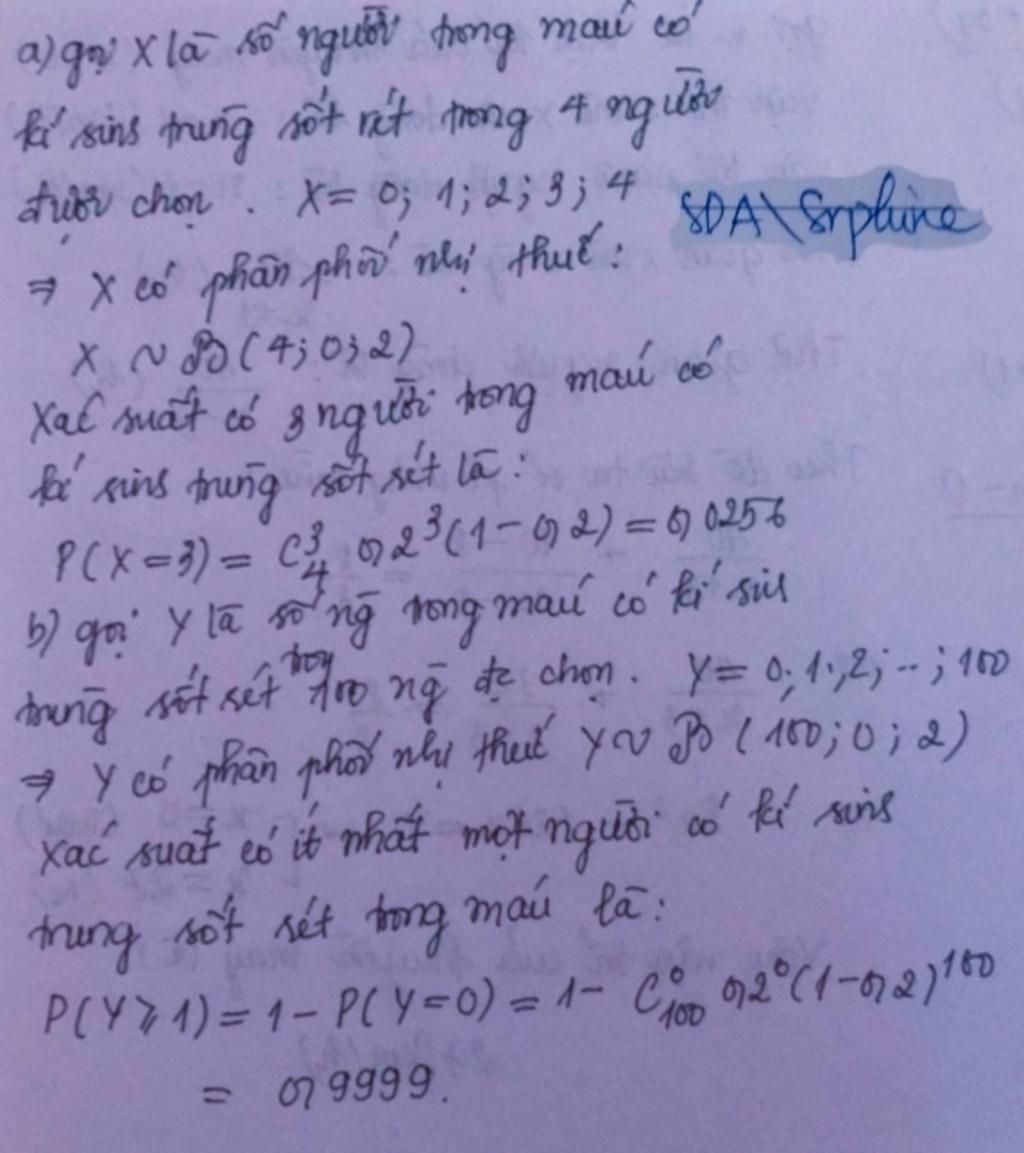 a) gọi X là số người trong máu có
kí sins trùng sốt rét trong 4 người
được chọn. X = 0; 1; 2; 3; 4
SDA\Srphine
⇒ X có phân phối nhị thức:
X ~ B(4; 0; 2)
Xác suất có 3 người trong máu có
kí sins trùng sốt sét là:
P(X = 3) = C₄³ 0,2³(1 - 0,2) = 0,0256
b) gọi Y là số ng̃ trong máu có kí sins
trùng sốt sét trong 100 ng̃ đc chọn. Y = 0; 1; 2; ..; 100
⇒ Y có phân phối nhị thức Y ~ B (100; 0; 2)
Xác suất có ít nhất một người có kí sins
trung sốt sét trong máu là:
P(Y ⩾ 1) = 1 - P(Y = 0) = 1 - C₁₀₀⁰ 0,2⁰(1 - 0,2)¹⁰⁰
= 0,9999.